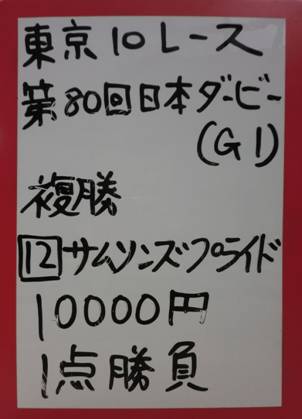 東京10レース
第80回日本ダービー
(G1)
複勝
12サムソンズプライド
10000円
1点勝負